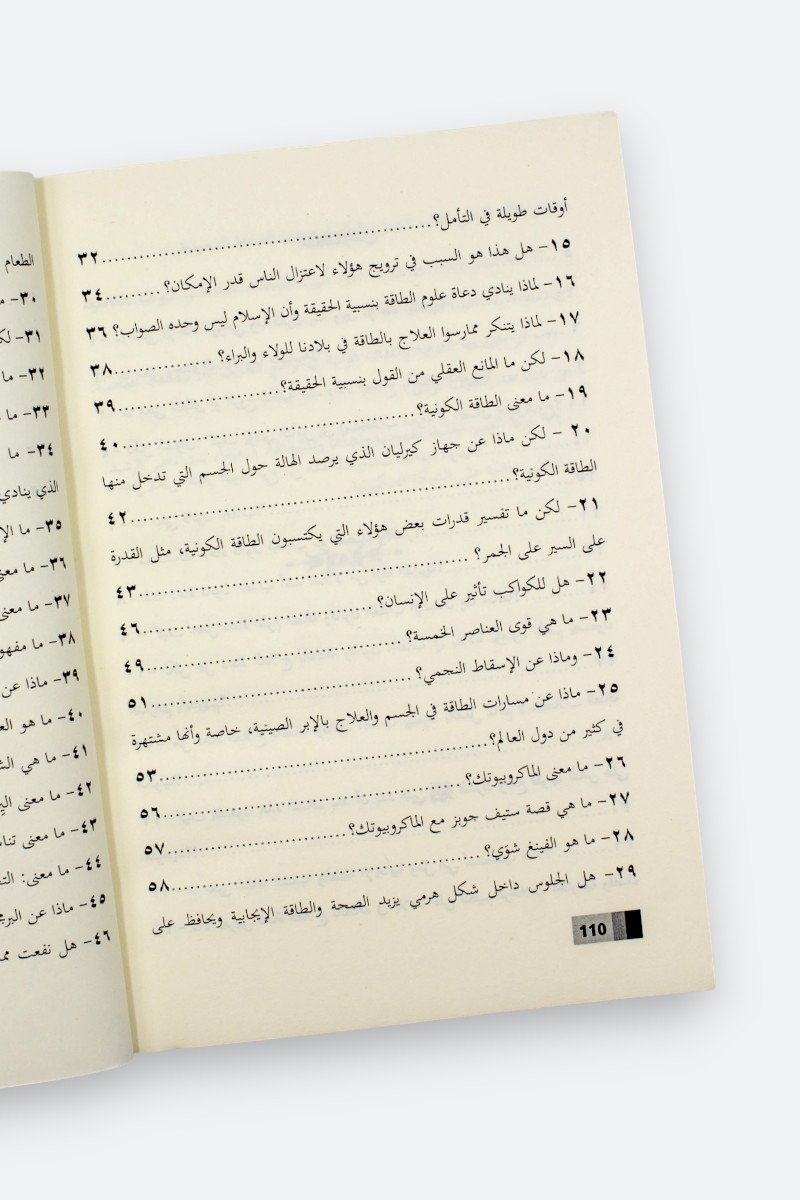 أوقات طويلة في التأمل؟ ........ ٣٢
١٥- هل هذا هو السبب في ترويج هؤلاء لاعتزال الناس قدر الإمكان؟ ........ ٣٤
١٦- لماذا ينادي دعاة علوم الطاقة بنسبية الحقيقة وأن الإسلام ليس وحده الصواب؟ ٣٦
١٧- لماذا يتنكر ممارسوا العلاج بالطاقة في بلادنا للولاء والبراء؟ ........ ٣٨
١٨- لكن ما المانع العقلي من القول بنسبية الحقيقة؟ ........ ٣٩
١٩- ما معنى الطاقة الكونية؟ ........ ٤٠
٢٠ - لكن ماذا عن جهاز كيرليان الذي يرصد الهالة حول الجسم التي تدخل منها
الطاقة الكونية؟ ........ ٤٢
٢١- لكن ما تفسير قدرات بعض هؤلاء التي يكتسبون الطاقة الكونية، مثل القدرة
على السير على الجمر؟ ........ ٤٣
٢٢- هل للكواكب تأثير على الإنسان؟ ........ ٤٦
٢٣- ما هي قوى العناصر الخمسة؟ ........ ٤٩
٢٤- وماذا عن الإسقاط النجمي؟ ........ ٥١
٢٥- ماذا عن مسارات الطاقة في الجسم والعلاج بالإبر الصينية، خاصة وأنها مشتهرة
في كثير من دول العالم؟ ........ ٥٣
٢٦- ما معنى الماكروبيوتك؟ ........ ٥٦
٢٧- ما هي قصة ستيف جوبز مع الماكروبيوتك؟ ........ ٥٧
٢٨- ما هو الفينغ شوَي؟ ........ ٥٨
٢٩- هل الجلوس داخل شكل هرمي يزيد الصحة والطاقة الإيجابية ويحافظ على
110
الطعام
٣٠-
٣١-
٣٢- ما
٣٣- ما
٣٤- ما
الذي ينادي
٣٥- ما
٣٦- ما
٣٧- ما معنى
٣٨- ما
٣٩- ماذا عن
٤٠- ما هو
٤١- ما هي
٤٢- ما معنى
٤٣- ما معنى
٤٤- ما معنى:
٤٥- ماذا عن
٤٦- هل نفعت